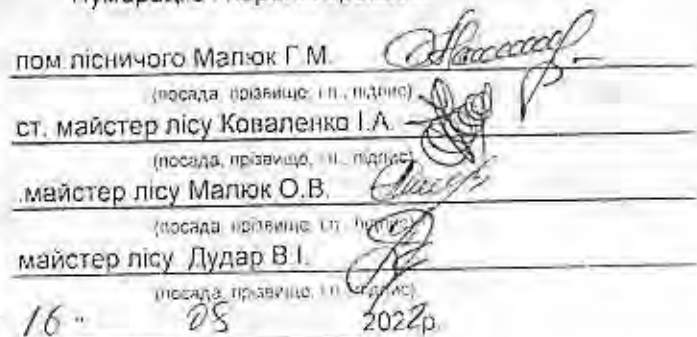 пом лісничого Малюк Г.М.
(посада, прізвище, і.п., підпис)
ст. майстер лісу Коваленко І.А.
(посада, прізвище, і.п., підпис)
.майстер лісу Малюк О.В.
(посада, прізвище, і.п., підпис)
майстер лісу Дудар В.І.
(посада, прізвище, і.п., підпис)
16 " 05 2022р.